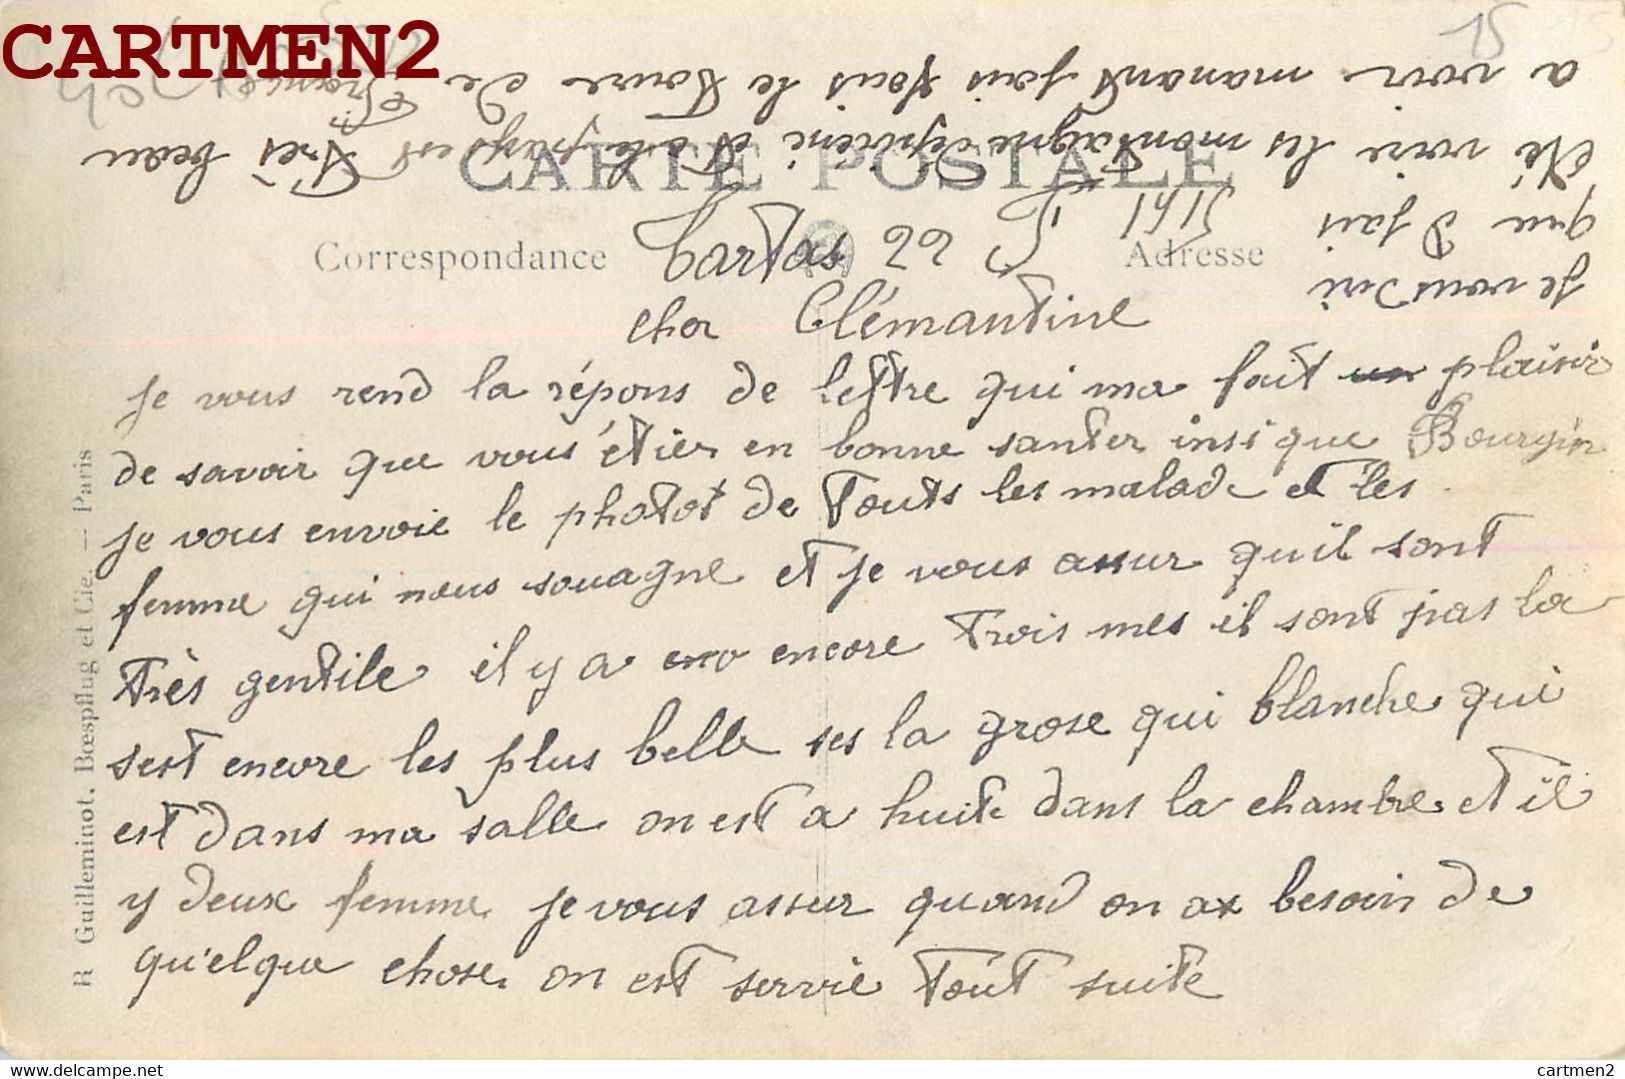 CARTMEN2
15 15
CARTE POSTALE
Correspondance
Adresse
Tartas 22
cher Clémantine
je vous rend la répons de lettre qui ma fait un plaisir
de savoir que vous étier en bonne santer insi que Bourgin
je vous envoie le photot de touts les malade et les
femme qui nous souagne et je vous assur qu'il sont
très gentile il y a enco encore trois mes il sont pas la
sest encore les plus belle ses la grose qui blanche qui
est dans ma salle on est a huite dans la chambre et il
y deux femme je vous assur quand on a besoin de
quelque chose on est servie tout suite
Je vous diri
que d jais
été voir les montagne et le pays est très beau
a voir manant jais fais le toure de
France
R Guilleminot. Bœspflug et Cie. — Paris
delcampe.net
cartmen2